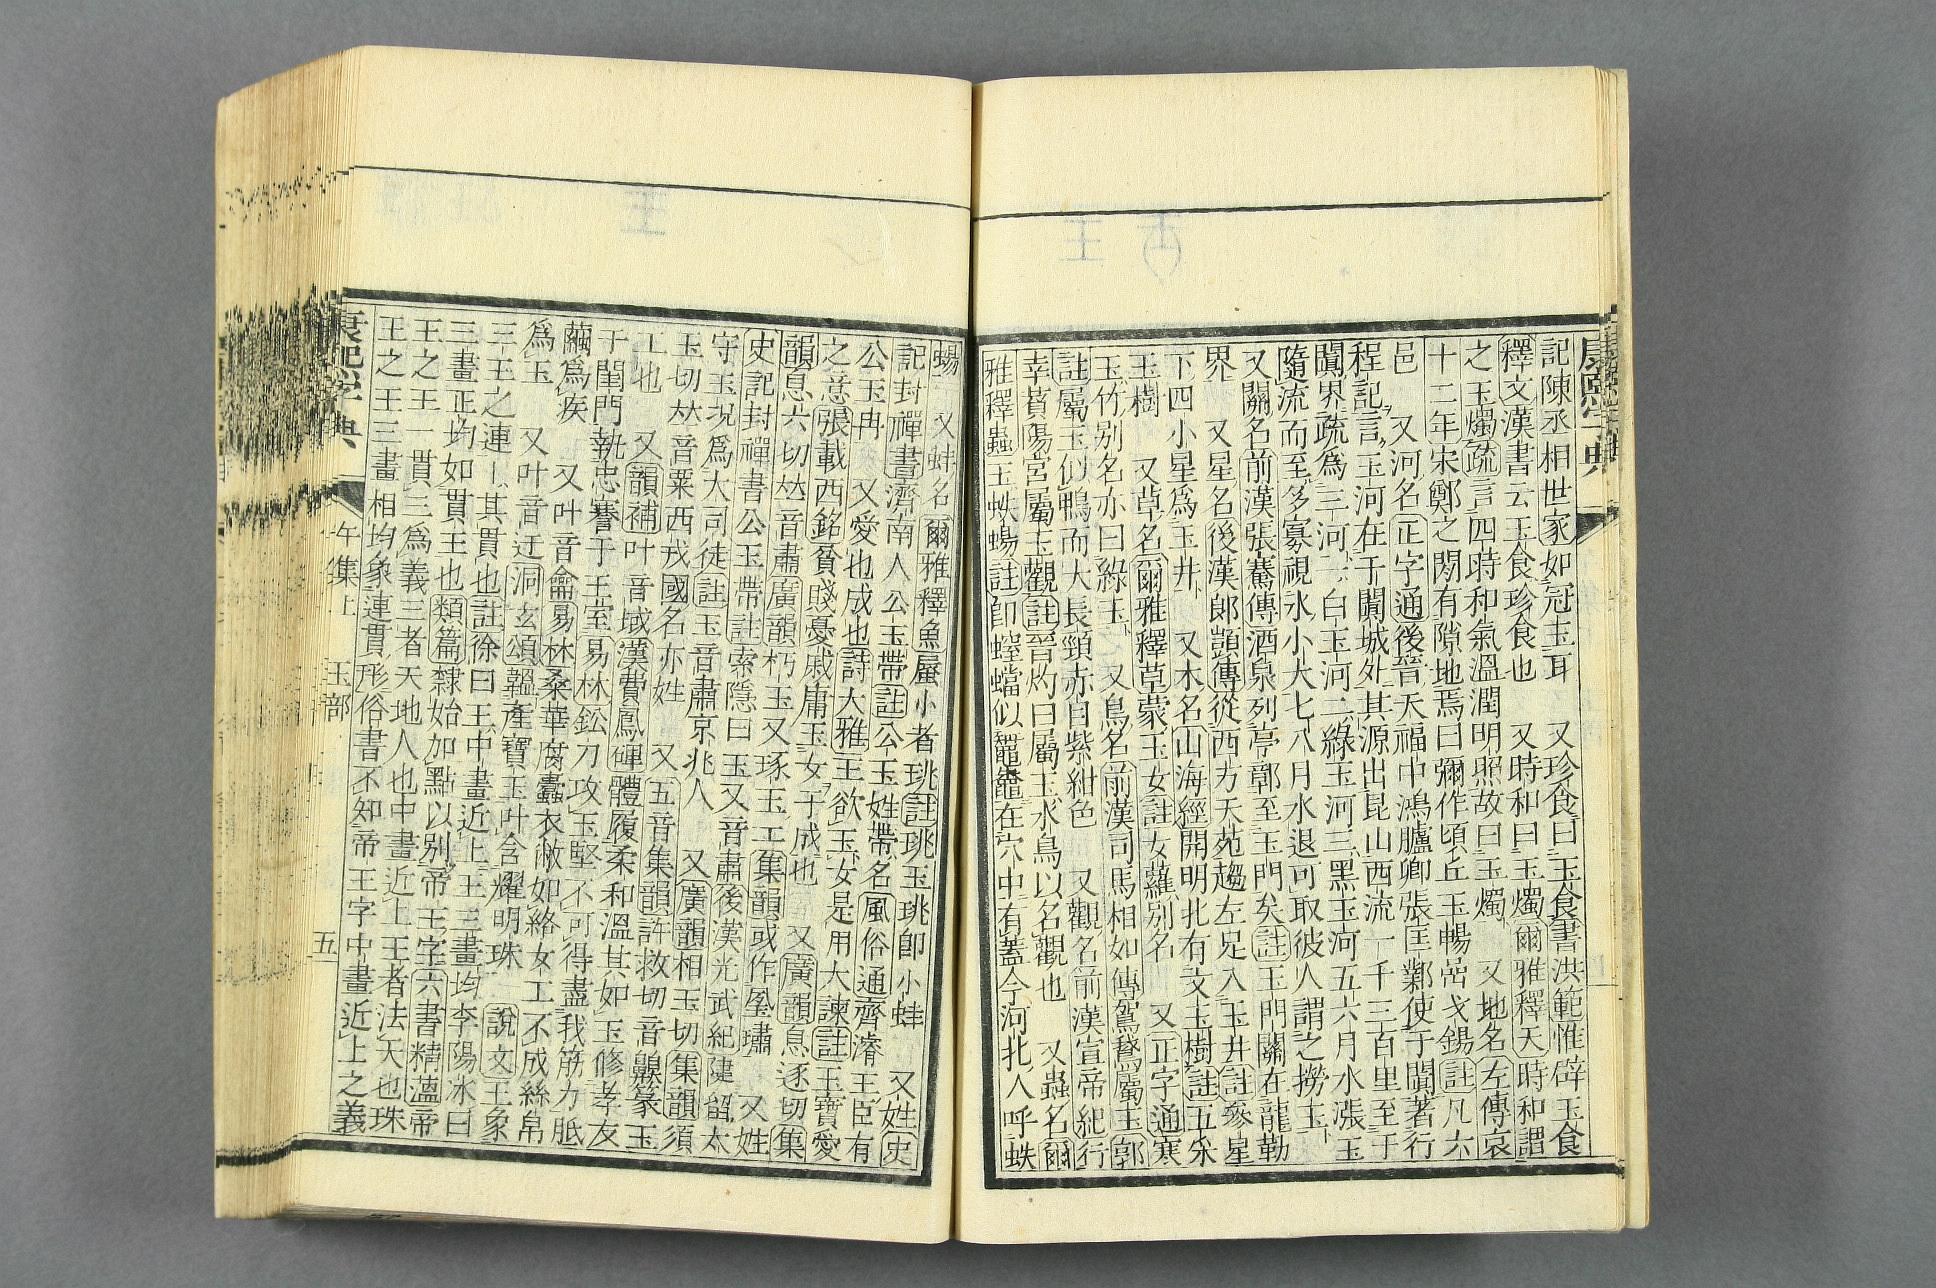 康熙字典
記陳丞相世家如冠玉耳 又珍食曰玉食書洪範惟辟玉食
釋文漢書云玉食珍食也 又時和曰玉燭爾雅釋天時和謂
之玉燭疏言四時和氣溫潤明照故曰玉燭 又地名左傳哀
十二年宋鄭之閒有隙地焉曰彌作頃丘玉暢嵒戈鍚註凡六
邑 又河名正字通後晉天福中鴻臚卿張匡鄴使于闐著行
程記言玉河在于闐城外其源出昆山西流一千三百里至于
闐界疏為三河一白玉河二綠玉河三黑玉河五六月水漲玉
隨流而至多寡視水小大七八月水退可取彼人謂之撈玉
又關名前漢張騫傳酒泉列亭鄣至玉門矣註玉門關在龍勒
界 又星名後漢郞顗傳從西方天苑趨左足入玉井註參星
下四小星為玉井 又木名山海經開明北有文玉樹註五采
玉樹 又草名爾雅釋草蒙玉女註女蘿別名 又正字通寒
玉竹別名亦曰綠玉 又鳥名前漢司馬相如傳駕鵞屬玉郭
註屬玉似鴨而大長頸赤目紫紺色 又觀名前漢宣帝紀行
幸萯陽宮屬玉觀註晉灼曰屬玉水鳥以名觀也 又蟲名爾
雅釋蟲王蛈蜴註卽螳蟷似鼅鼄在穴中有蓋今河北人呼蛈
蜴 又蚌名爾雅釋魚蜃小者珧註珧玉珧卽小蚌 又姓史
記封禪書濟南人公玉帶註公玉姓帶名風俗通齊濬王臣有
公玉冉 又愛也成也詩大雅王欲玉女是用大諫註玉寶愛
之意張載西銘貧賤憂戚庸玉女于成也 又廣韻息逐切集
韻息六切𠀤音肅廣韻朽玉又琢玉工集韻或作㺷璛 又姓
史記封禪書公玉帶註索隱曰玉又音肅後漢光武紀建韶太
守玉況為大司徒註玉音肅京兆人 又廣韻相玉切集韻須
玉切𠀤音粟西戎國名亦姓 又五音集韻許救切音齅篆玉
工也 又韻補叶音域漢費鳳碑體履柔和溫其如玉修孝友
于閨門執忠謇于王室易林鉛刀攻玉堅不可得盡我筋力胝
繭為疾 又叶音龠易林桑華腐蠹衣敝如絡女工不成絲帛
為玉 又叶音迂洞玄頌韞產寶玉叶含燿明珠 說文玉象
三王之連丨其貫也註徐曰王中畫近上玉三畫均李陽冰曰
三畫正均如貫玉也類篇隸始加點以別帝王字六書精薀帝
王之王一貫三為義三者天地人也中畫近上王者法天也珠
玉之玉三畫相均象連貫形俗書不知帝王字中畫近上之義
康熙字典 午集上 玉部 五